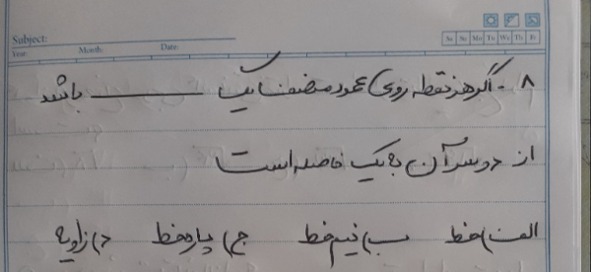 Subject:
Year: Month: Date:
Sa Su Mo Tu We Th Fr
۸ - اگر هر نقطه روی عمود منصف یک ــــــــــ باشد
از دو سر آن به یک فاصله است
الف) خط ب) نیم خط ج) پاره خط د) زاویه